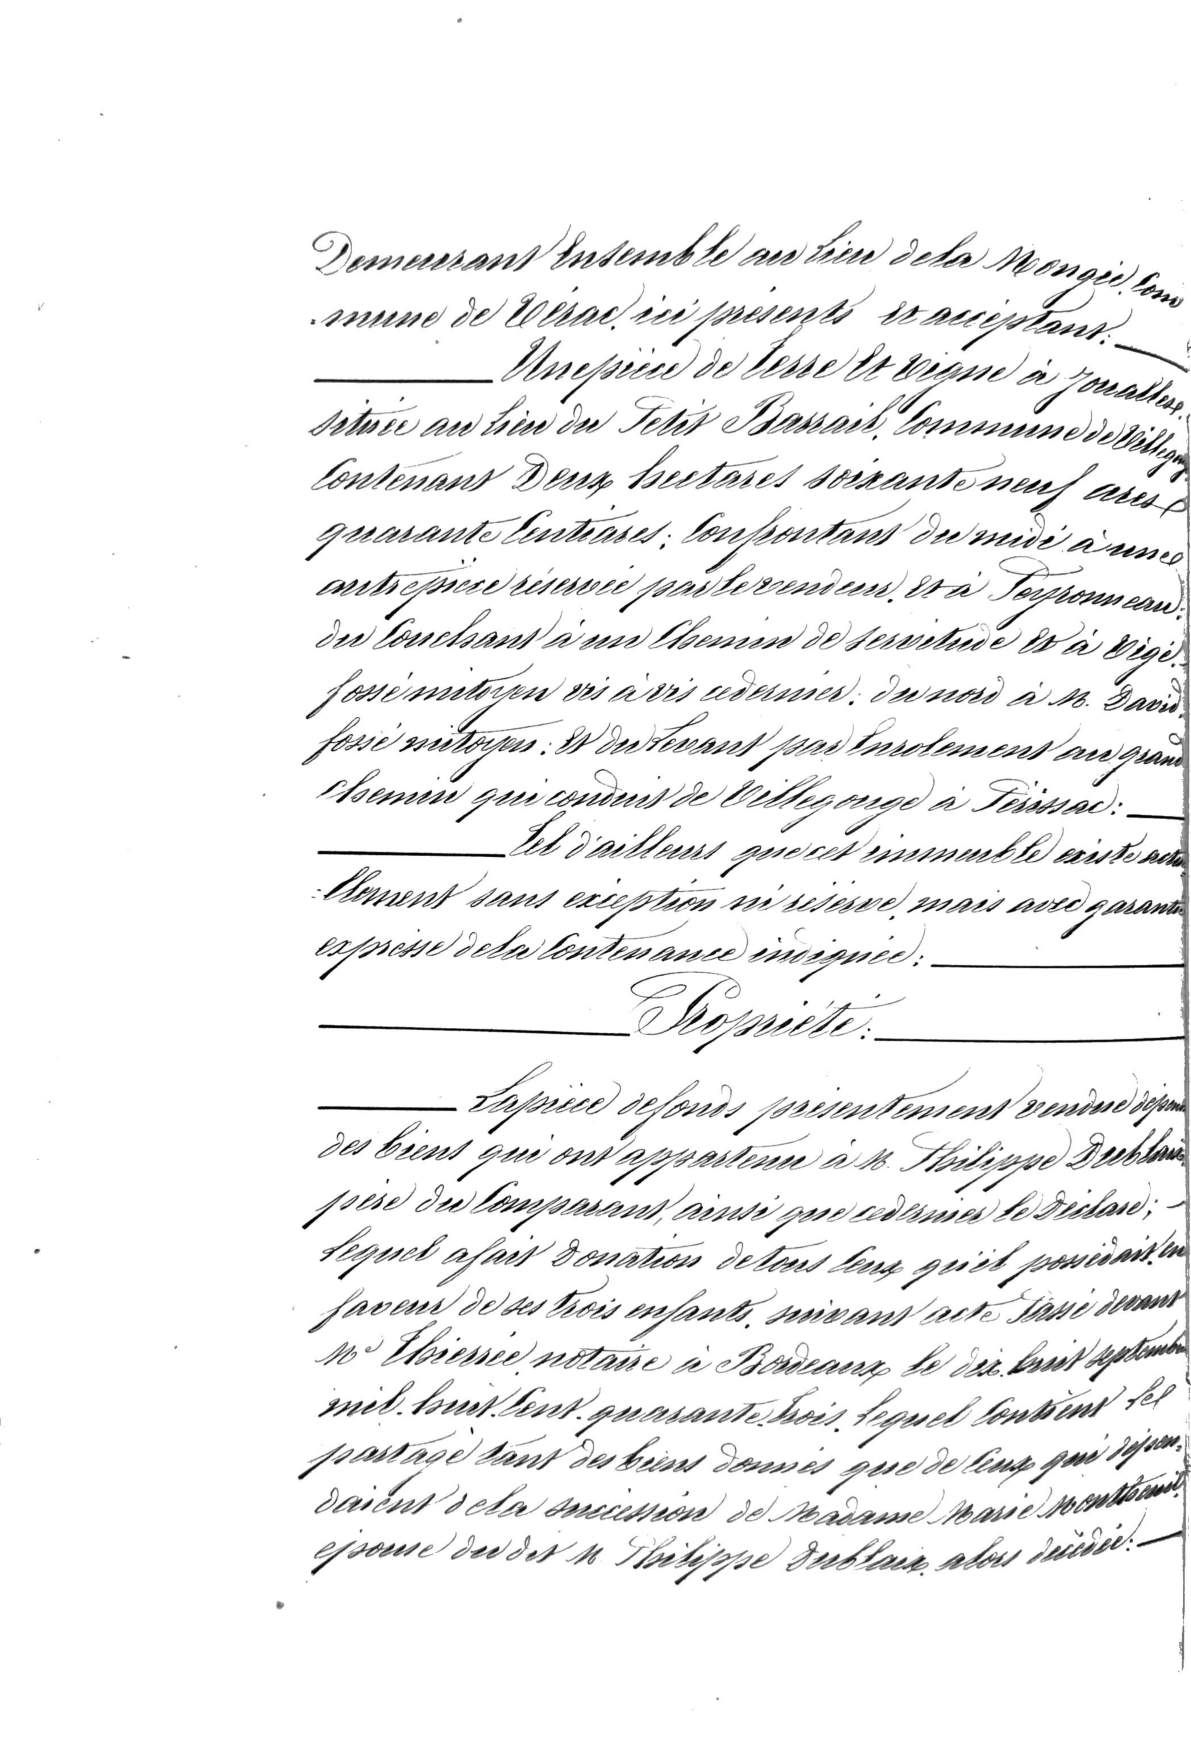 Demeurant Ensemble au Lieu de la Mongie, Com
-mune de Vérac, ici présents et acceptant:
Une pièce de Terre et Vigne à Jouallese,
située au Lieu du Petit Barrail, Commune de Villegouge
Contenant Deux hectares soixante neuf ares
quarante Centiares; Confrontant du midi à une
autre pièce réservée par le vendeur, et à Peyronneau;
du Couchant à un Chemin de servitude et à Vigé,
fossé mitoyen vis à vis ce dernier; du nord à M. David
fossé mitoyen; et du Levant par Enrolement au grand
Chemin qui conduit de Villegouge à Périssac:
Tel d'ailleurs que cet immeuble existe actue
-llement sans exception ni réserve, mais avec garantie
expresse de la Contenance indiquée:
Propriété:
La pièce de fonds présentement vendue dépend
des biens qui ont appartenu à M. Philippe Dublaix
père du Comparant, ainsi que ce dernier le Déclare;
Lequel a fait Donation de tous Ceux qu'il possédait, en
faveur de ses trois enfants, suivant acte Passé devant
Me Thierrée, notaire à Bordeaux, le dix huit septembre
mil. huit. Cent. quarante. trois, Lequel Contient Le
partage tant des biens donnés que de Ceux qui dépen-
daient de la succession de Madame Marie
épouse du dit M. Philippe Dublaix, alors décédée: